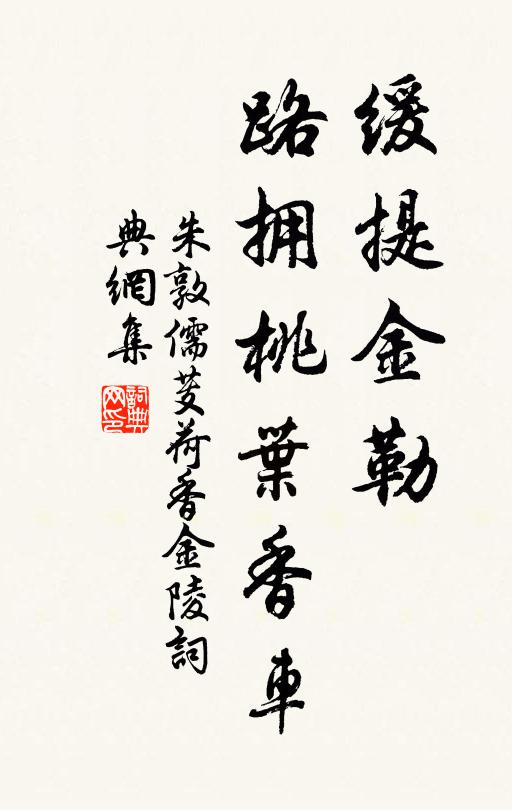 緩提金勒
路擁桃葉香車
朱敦儒芰荷香金陵詞
典網集
詞典網印